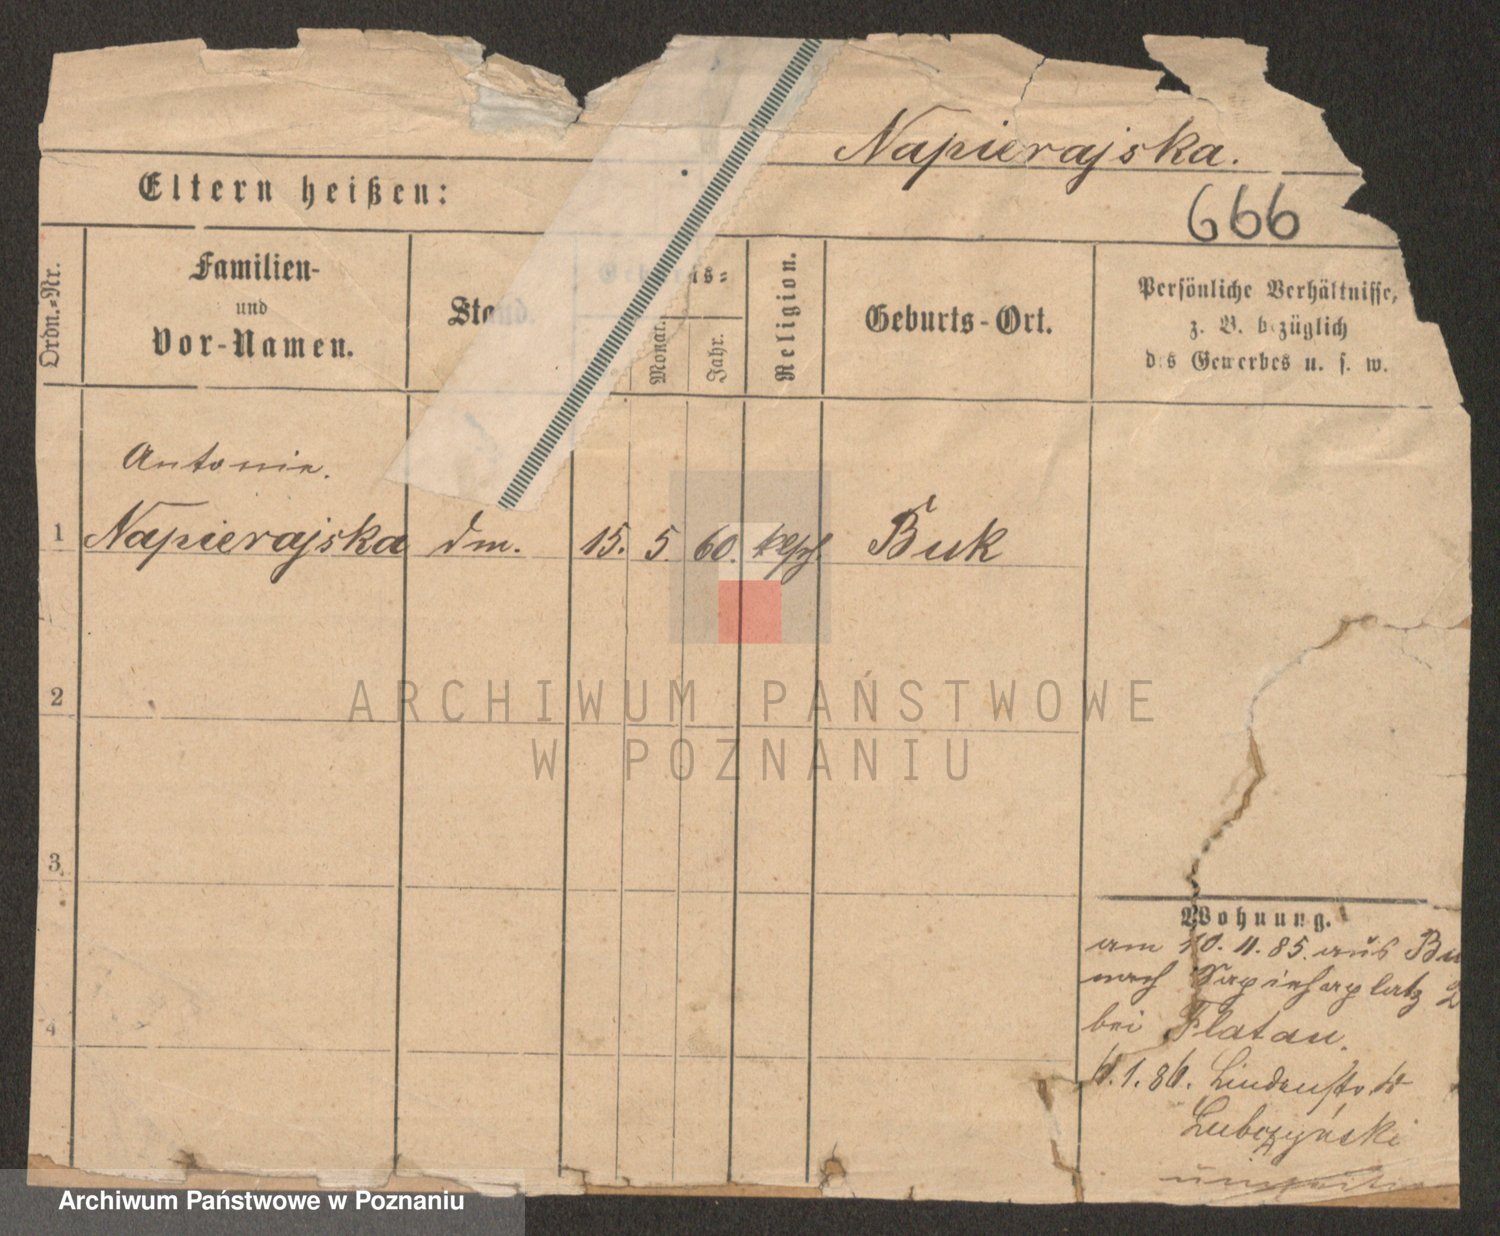 Napierajska.
666
Eltern heißen:
Ordn.-Nr.
Familien-
und
Vor-Namen.
Stand.
Geburts-
Monat.
Jahr.
Religion.
Geburts-Ort.
Persönliche Verhältnisse,
z. B. bezüglich
des Gewerbes u. s. w.
Antonie.
1 Napierajska dm. 15. 5. 60. Buk
2
ARCHIWUM PAŃSTWOWE
W POZNANIU
3
4
Wohnung.
am 10. 11. 85. aus Bu
nach Sapiehaplatz 2
bei Flatau.
1. 86. Lindenstr
Lubczyński
Archiwum Państwowe w Poznaniu